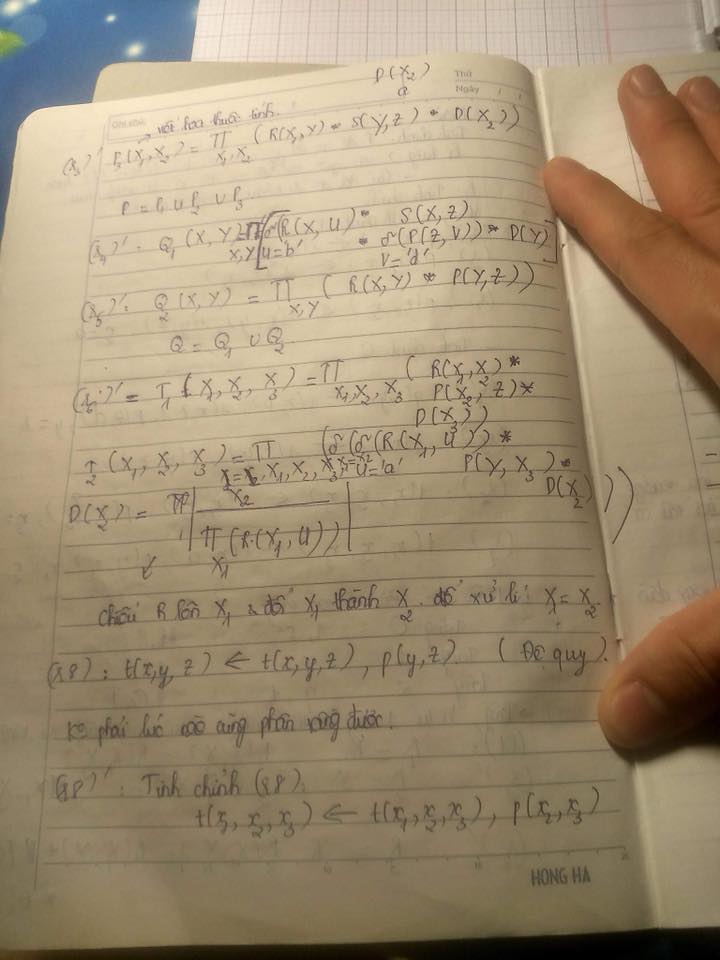 D(X₂)
a
Thứ
Ngày
→ viết hoa thuộc tính.
(r₃)' P₃(X₁,X₂) = Π X₁,X₂ (R(X₁,Y) * S(Y,Z) * D(X₂))
P = P₁ ∪ P₂ ∪ P₃
(r₄)' : Q₁(X,Y) = Π X,Y [σ(R(X,U)) * S(X,Z)
U='b' * σ(P(Z,V)) * D(Y)]
V='d'
(r₅)' : Q₂(X,Y) = Π X,Y (R(X,Y) * P(Y,Z))
Q = Q₁ ∪ Q₂
T₁(X₁,X₂,X₃) = Π X₁,X₂,X₃ (R(X₁,X₂) *
P(X₂,Z) *
D(X₃))
T₂(X₁,X₂,X₃) = Π (σ(σ(R(X₁,U)) *
X₁,X₂,X₃ X₁=X₂ U='a' P(Y,X₃) *
D(X₂)))
D(X₂) = Π X₂
Π X₁ (R(X₁,U))
chiếu R lên X₁ & đổi X₁ thành X₂ để xử lí X₁ = X₂
(r8) : t(x,y,z) ← t(x,y,z), p(y,z) (Đệ quy).
Ko phải lúc nào cũng phân vùng được.
(r8)' : Tinh chỉnh (r8)
t(x₁,x₂,x₃) ← t(x₁,x₂,x₃), p(x₂,x₃)
HONG HA